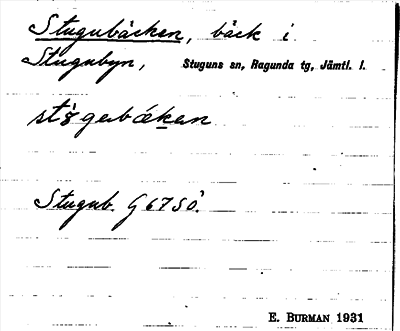 Stugubäcken, bäck i
Stugubyn, Stuguns sn, Ragunda tg, Jämtl. l.
Stugub. G 67 SO.
E. BURMAN 1931